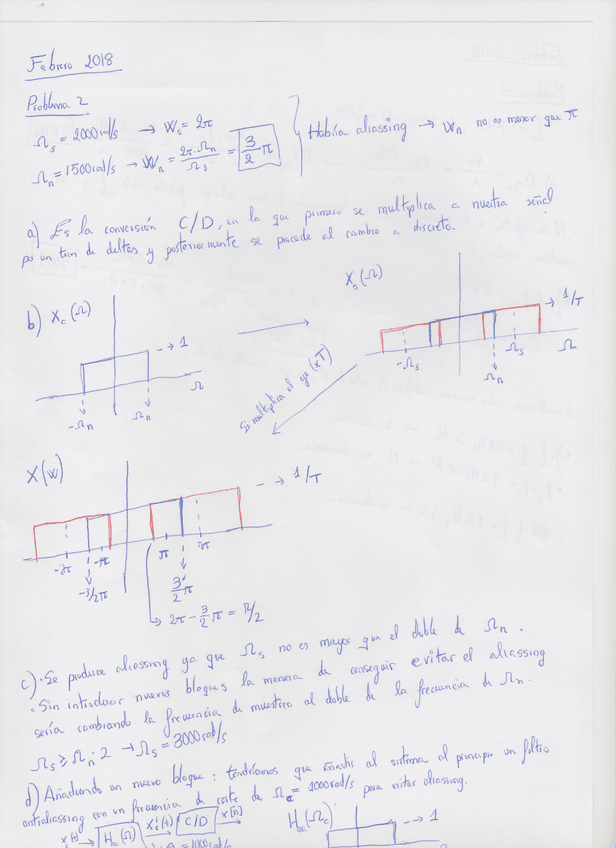 Febrero 2018
Problema 2
Ω_s = 2000 rad/s → W_s = 2π
Ω_n = 1500 rad/s → W_n = 2π·Ω_n/Ω_s = 3/2 π
Habría aliassing → W_n no es menor que π
a) Es la conversión C/D, en la que primero se multiplica a nuestra señal
por un tren de deltas y posteriormente se procede al cambio a discreto.
b) X_c(Ω)
→ 1
-Ω_n Ω_n Ω
X_s(Ω)
→ 1/T
-Ω_s Ω_s Ω
Ω_n
Se multiplica el eje (xT)
X(W)
→ 1/T
-2π -π π 2π
-3/2π 3/2 π
→ 2π - 3/2 π = π/2
c) · Se produce aliassing ya que Ω_s no es mayor que el doble de Ω_n.
· Sin introducir nuevos bloques la manera de conseguir evitar el aliassing
sería cambiando la frecuencia de muestreo al doble de la frecuencia de Ω_n.
Ω_s ≥ Ω_n · 2 → Ω_s = 3000 rad/s
d) Añadiendo un nuevo bloque: tendríamos que añadir al sistema al principio un filtro
antialiassing con un frecuencia de corte de Ω_c = 1000 rad/s para evitar aliassing.
x(t) → (Ω) (t) → C/D x[n] →
= 1000 rad/s
(Ω_c)
→ 1